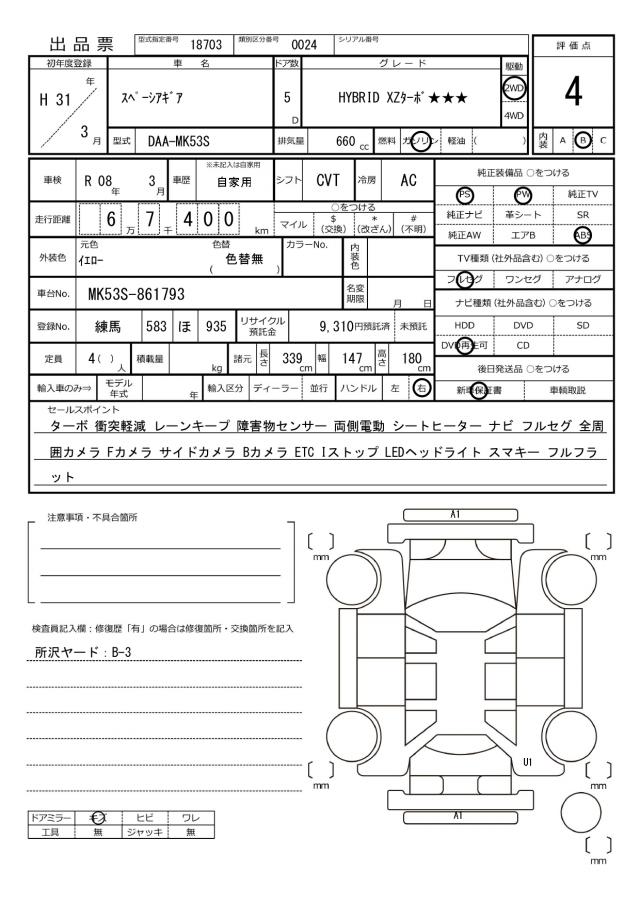 出品票 型式指定番号 18703 類別区分番号 0024 シリアル番号
評価点
4
初年度登録 車名 ドア数 グレード 駆動
H 31 年 3 月
ｽﾍﾟｰｼｱｷﾞｱ 5 D HYBRID XZﾀｰﾎﾞ★★★ 2WD
4WD
型式 DAA-MK53S 排気量 660 cc 燃料 ガソリン 軽油 ( )
内装 A B C
車検 R 08 年 3 月 車歴 ※未記入は自家用 自家用 シフト CVT 冷房 AC
走行距離 6 万 7 千 4 0 0 km
○をつける
マイル $(交換) *(改ざん) #(不明)
外装色 元色 ｲｴﾛｰ 色替 ( 色替無 ) カラーNo. 内装色
車台No. MK53S-861793 名変期限 月 日
登録No. 練馬 583 ほ 935 リサイクル預託金 9,310円預託済 未預託
定員 4( )人 積載量 kg 諸元 長さ 339 cm 幅 147 cm 高さ 180 cm
輸入車のみ⇒ モデル年式 年 輸入区分 ディーラー 並行 ハンドル 左 右
純正装備品 ○をつける
PS PW 純正TV
純正ナビ 革シート SR
純正AW エアB ABS
TV種類 (社外品含む) ○をつける
フルセグ ワンセグ アナログ
ナビ種類 (社外品含む) ○をつける
HDD DVD SD
DVD再生可 CD
後日発送品 ○をつける
新車保証書 車輌取説
セールスポイント
ターボ 衝突軽減 レーンキープ 障害物センサー 両側電動 シートヒーター ナビ フルセグ 全周
囲カメラ Fカメラ サイドカメラ Bカメラ ETC Iストップ LEDヘッドライト スマキー フルフラ
ット
注意事項・不具合箇所
検査員記入欄：修復歴「有」の場合は修復箇所・交換箇所を記入
所沢ヤード：B-3
ドアミラー キズ ヒビ ワレ
工具 無 ジャッキ 無
A1
mm
mm
U1
mm
mm
A1
mm